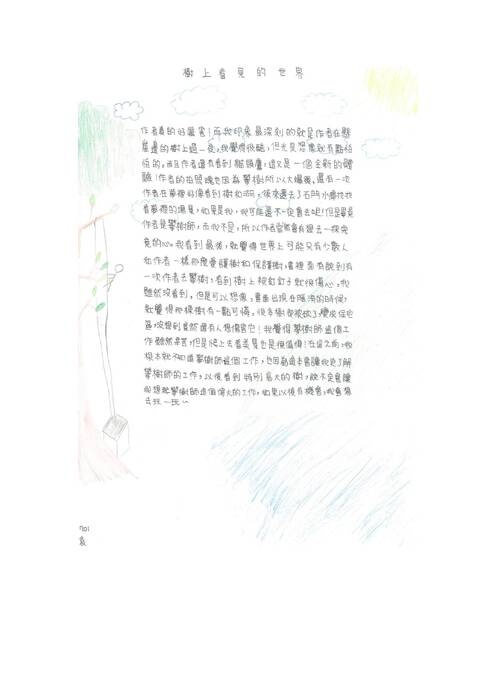 樹上看見的世界
作者真的好厲害!而我印象最深刻的就是作者在懸
崖邊的樹上過一夜,我覺得很酷,但光是想像就有點怕
怕的。而且作者還有看到貓頭鷹,這又是一個全新的體
驗!作者的拍照魂也因為攀樹所以大爆發,還有一次
作者在夢裡好像看到樹和湖,後來還去了石門水庫找找
看夢裡的場景,如果是我,我可能還不一定會去呢!但是畢竟
作者是攀樹師,而我不是,所以作者當然會有想去一探究
竟的心。我看到最後,就覺得世界上可能只有少數人
和作者一樣那麼愛護樹和保護樹,書裡面有說到有
一次作者去攀樹,看到樹上被釘釘子就很傷心,我
雖然沒看到,但是可以想像,畫面出現在腦海的時候,
就覺得那棵樹有一點可憐。很多樹都被砍了,變成保宅
區,沒想到竟然還有人想傷害它!我覺得攀樹師這個工
作雖然辛苦,但是爬上去看美景也是很值得!在這之前,我
根本就不知道攀樹師這個工作,也因為這本書讓我更了解
攀樹師的工作,以後看到特別高大的樹,說不定會讓
我想起攀樹師這個偉大的工作,如果以後有機會,我會想
去玩一玩~
701
袁